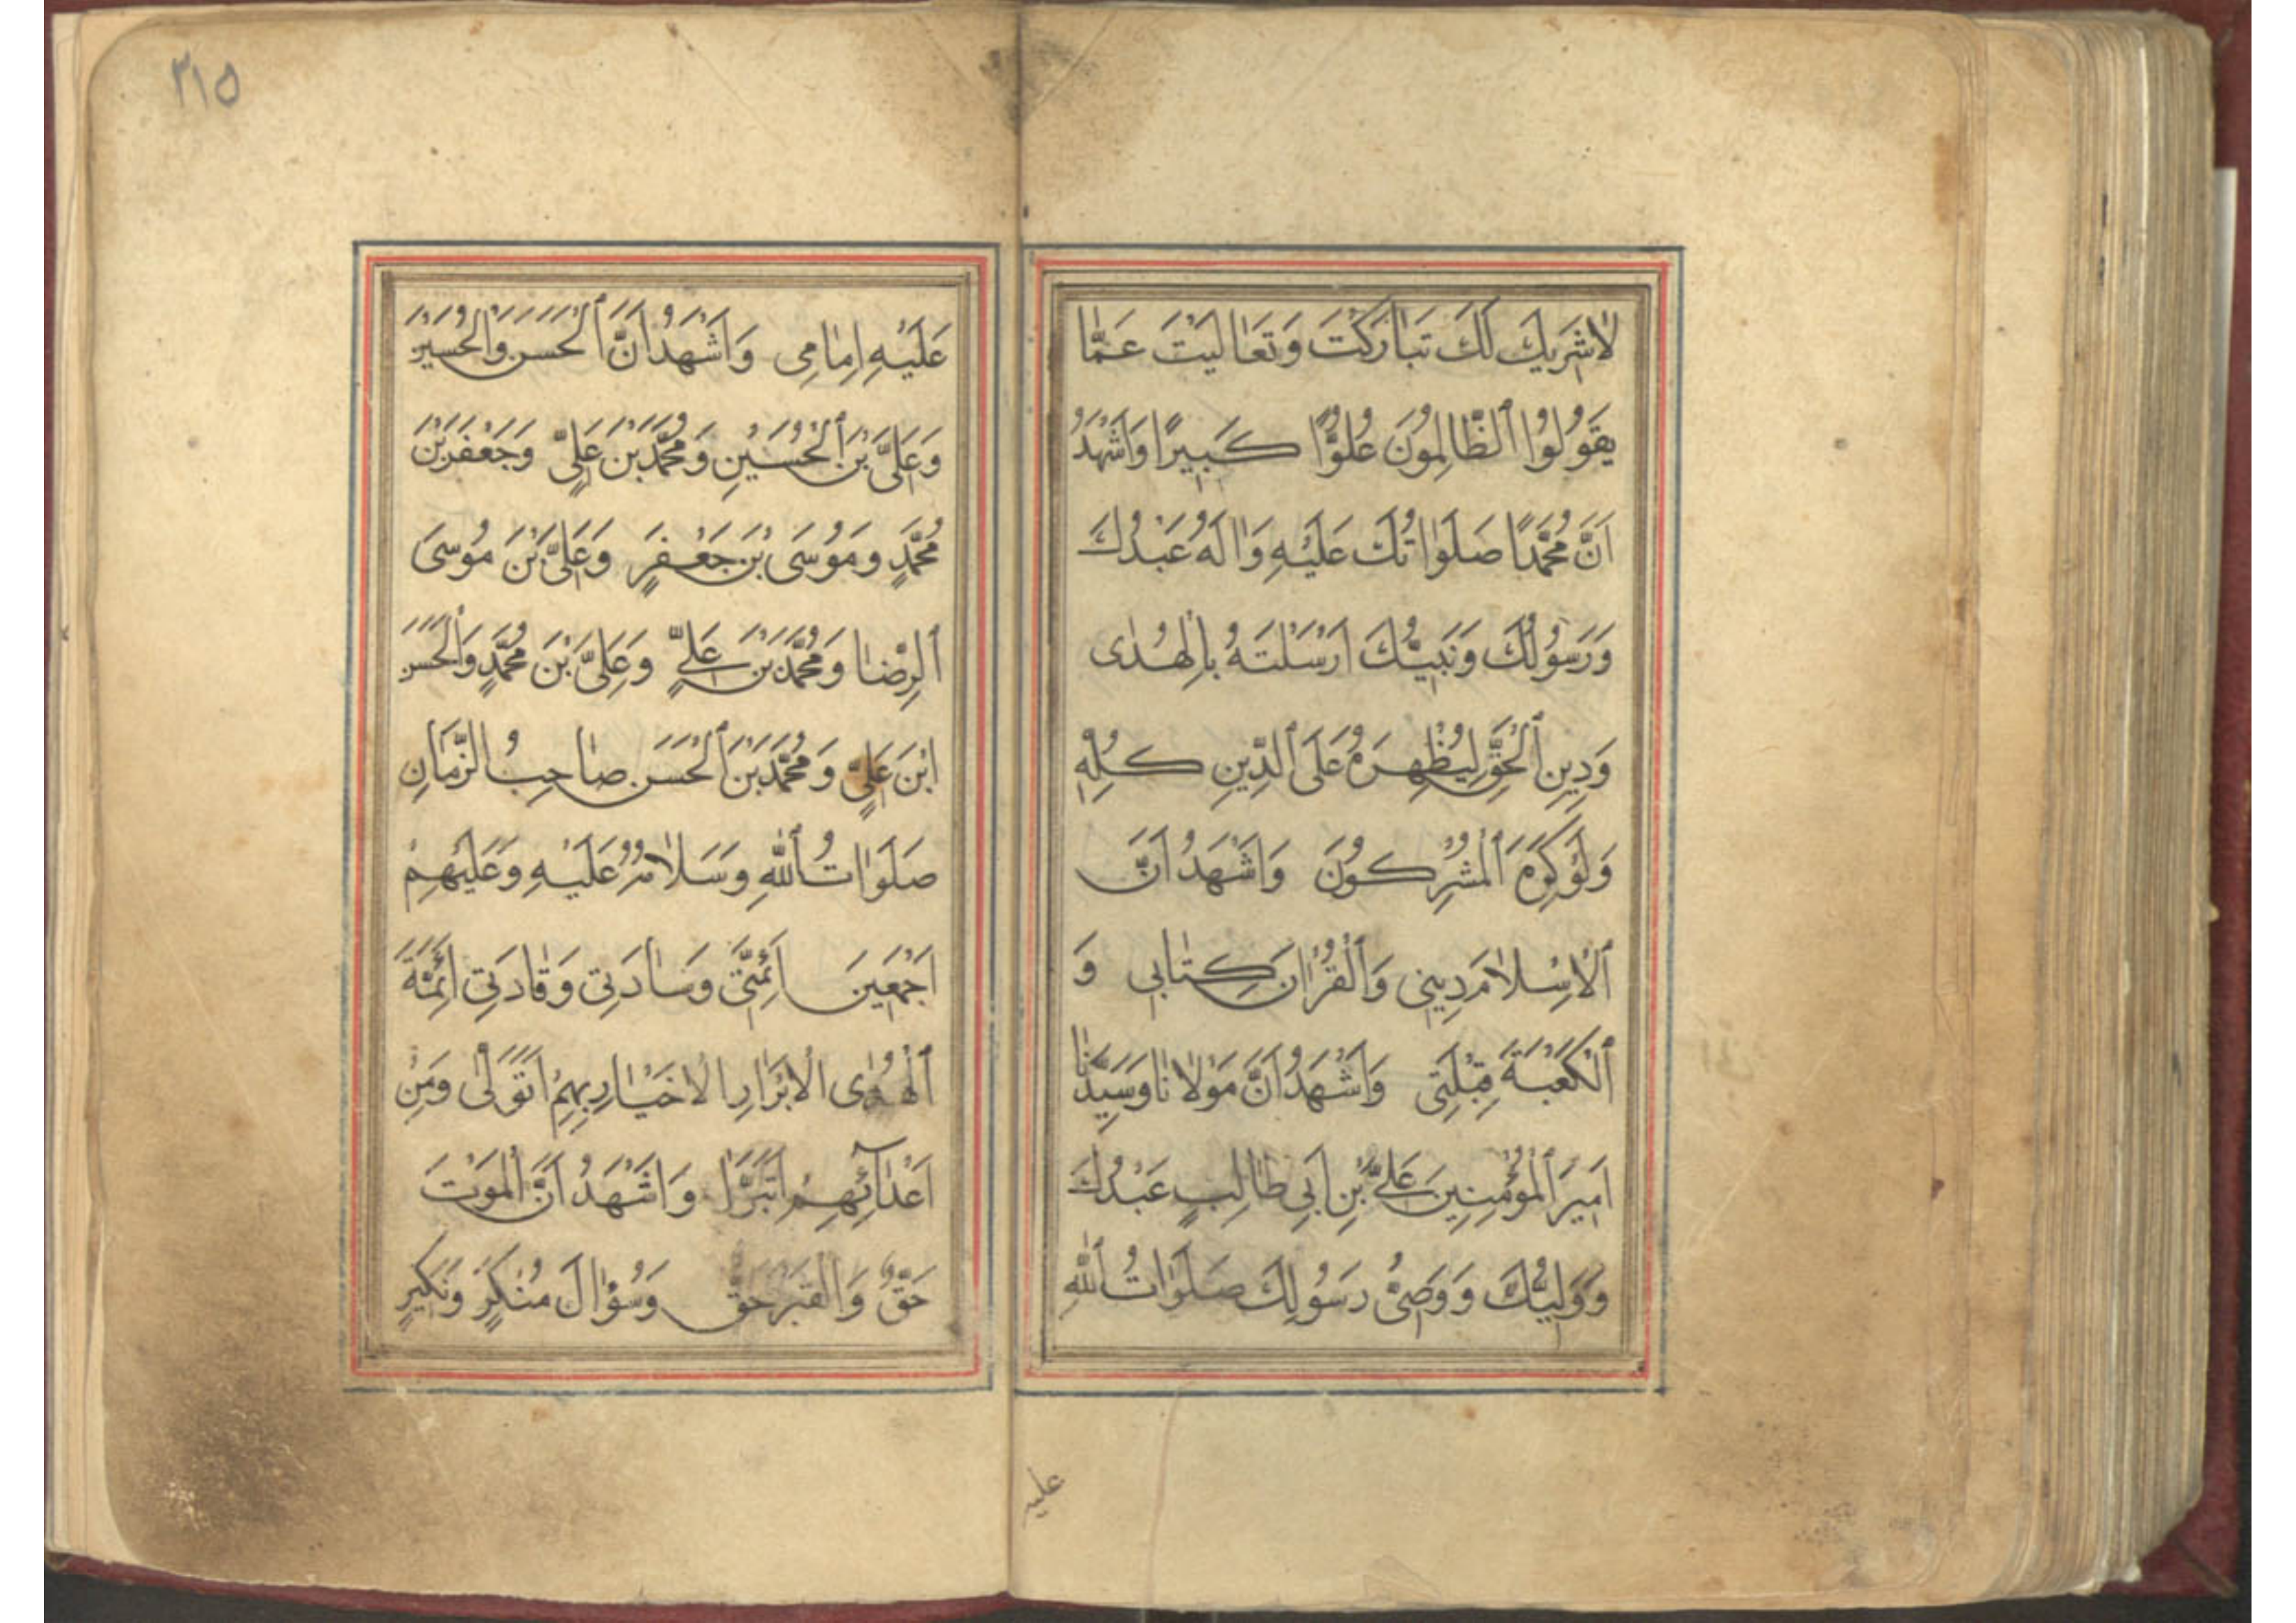 لاٰشَرِيكَ لَكَ تَبٰارَكْتَ وَتَعٰالَيْتَ عَمّٰا
يَقُولُوا ٱلظّٰالِمُونَ عُلُوًّا كَبِيرًا وَاَشْهَدُ
اَنَّ مُحَمَّدًا صَلَوٰاتُكَ عَلَيْهِ وَاٰلَهُ عَبْدُكَ
وَرَسُولُكَ وَنَبِيُّكَ اَرْسَلْتَهُ بِالْهُدٰى
وَدِينِ ٱلْحَقِّ لِيُظْهِرَهُ عَلَى ٱلدِّينِ كُلِّهِ
وَلَوْكَرِهَ ٱلْمُشْرِكُونَ وَاَشْهَدُ اَنَّ
ٱلْاِسْلاٰمَ دِينِى وَٱلْقُرْاٰنَ كِتٰابِى وَ
ٱلْكَعْبَةَ قِبْلَتِى وَاَشْهَدُ اَنَّ مَوْلاٰنٰا وَسَيِّدَنٰا
اَمِيرَ ٱلْمُؤْمِنِينَ عَلِىَّ بْنِ اَبِى طٰالِبٍ عَبْدُكَ
وَوَلِيُّكَ وَوَصِىُّ رَسُولِكَ صَلَوٰاتُ ٱللّٰهِ
عليه
٢١٥
عَلَيْهِ اِمٰامِى وَاَشْهَدُ اَنَّ ٱلْحَسَنَ وَالْحُسَيْنَ
وَعَلِىَّ بْنَ ٱلْحُسَيْنِ وَمُحَمَّدَ بْنَ عَلِىٍّ وَجَعْفَرَ بْنَ
مُحَمَّدٍ وَمُوسَى بْنَ جَعْفَرٍ وَعَلِىَّ بْنَ مُوسَى
ٱلرِّضٰا وَمُحَمَّدَ بْنَ عَلِىٍّ وَعَلِىَّ بْنَ مُحَمَّدٍ وَالْحَسَنَ
ابْنَ عَلِىٍّ وَمُحَمَّدَ بْنَ ٱلْحَسَنِ صٰاحِبُ الزَّمٰانِ
صَلَوٰاتُ ٱللّٰهِ وَسَلاٰمُهُ عَلَيْهِ وَعَلَيْهِمْ
اَجْمَعِينَ اَئِمَّتِى وَسٰادَتِى وَقٰادَتِى اَئِمَّةَ
ٱلْهُدٰى الْاَبْرٰارِ الْاَخْيٰارِ بِهِمْ اَتَوَلّٰى وَمِنْ
اَعْدٰآئِهِمْ اَتَبَرَّأُ وَاَشْهَدُ اَنَّ ٱلْمَوْتَ
حَقٌّ وَالْقَبْرَ حَقٌّ وَسُؤٰالَ مُنْكَرٍ وَنَكِيرٍ